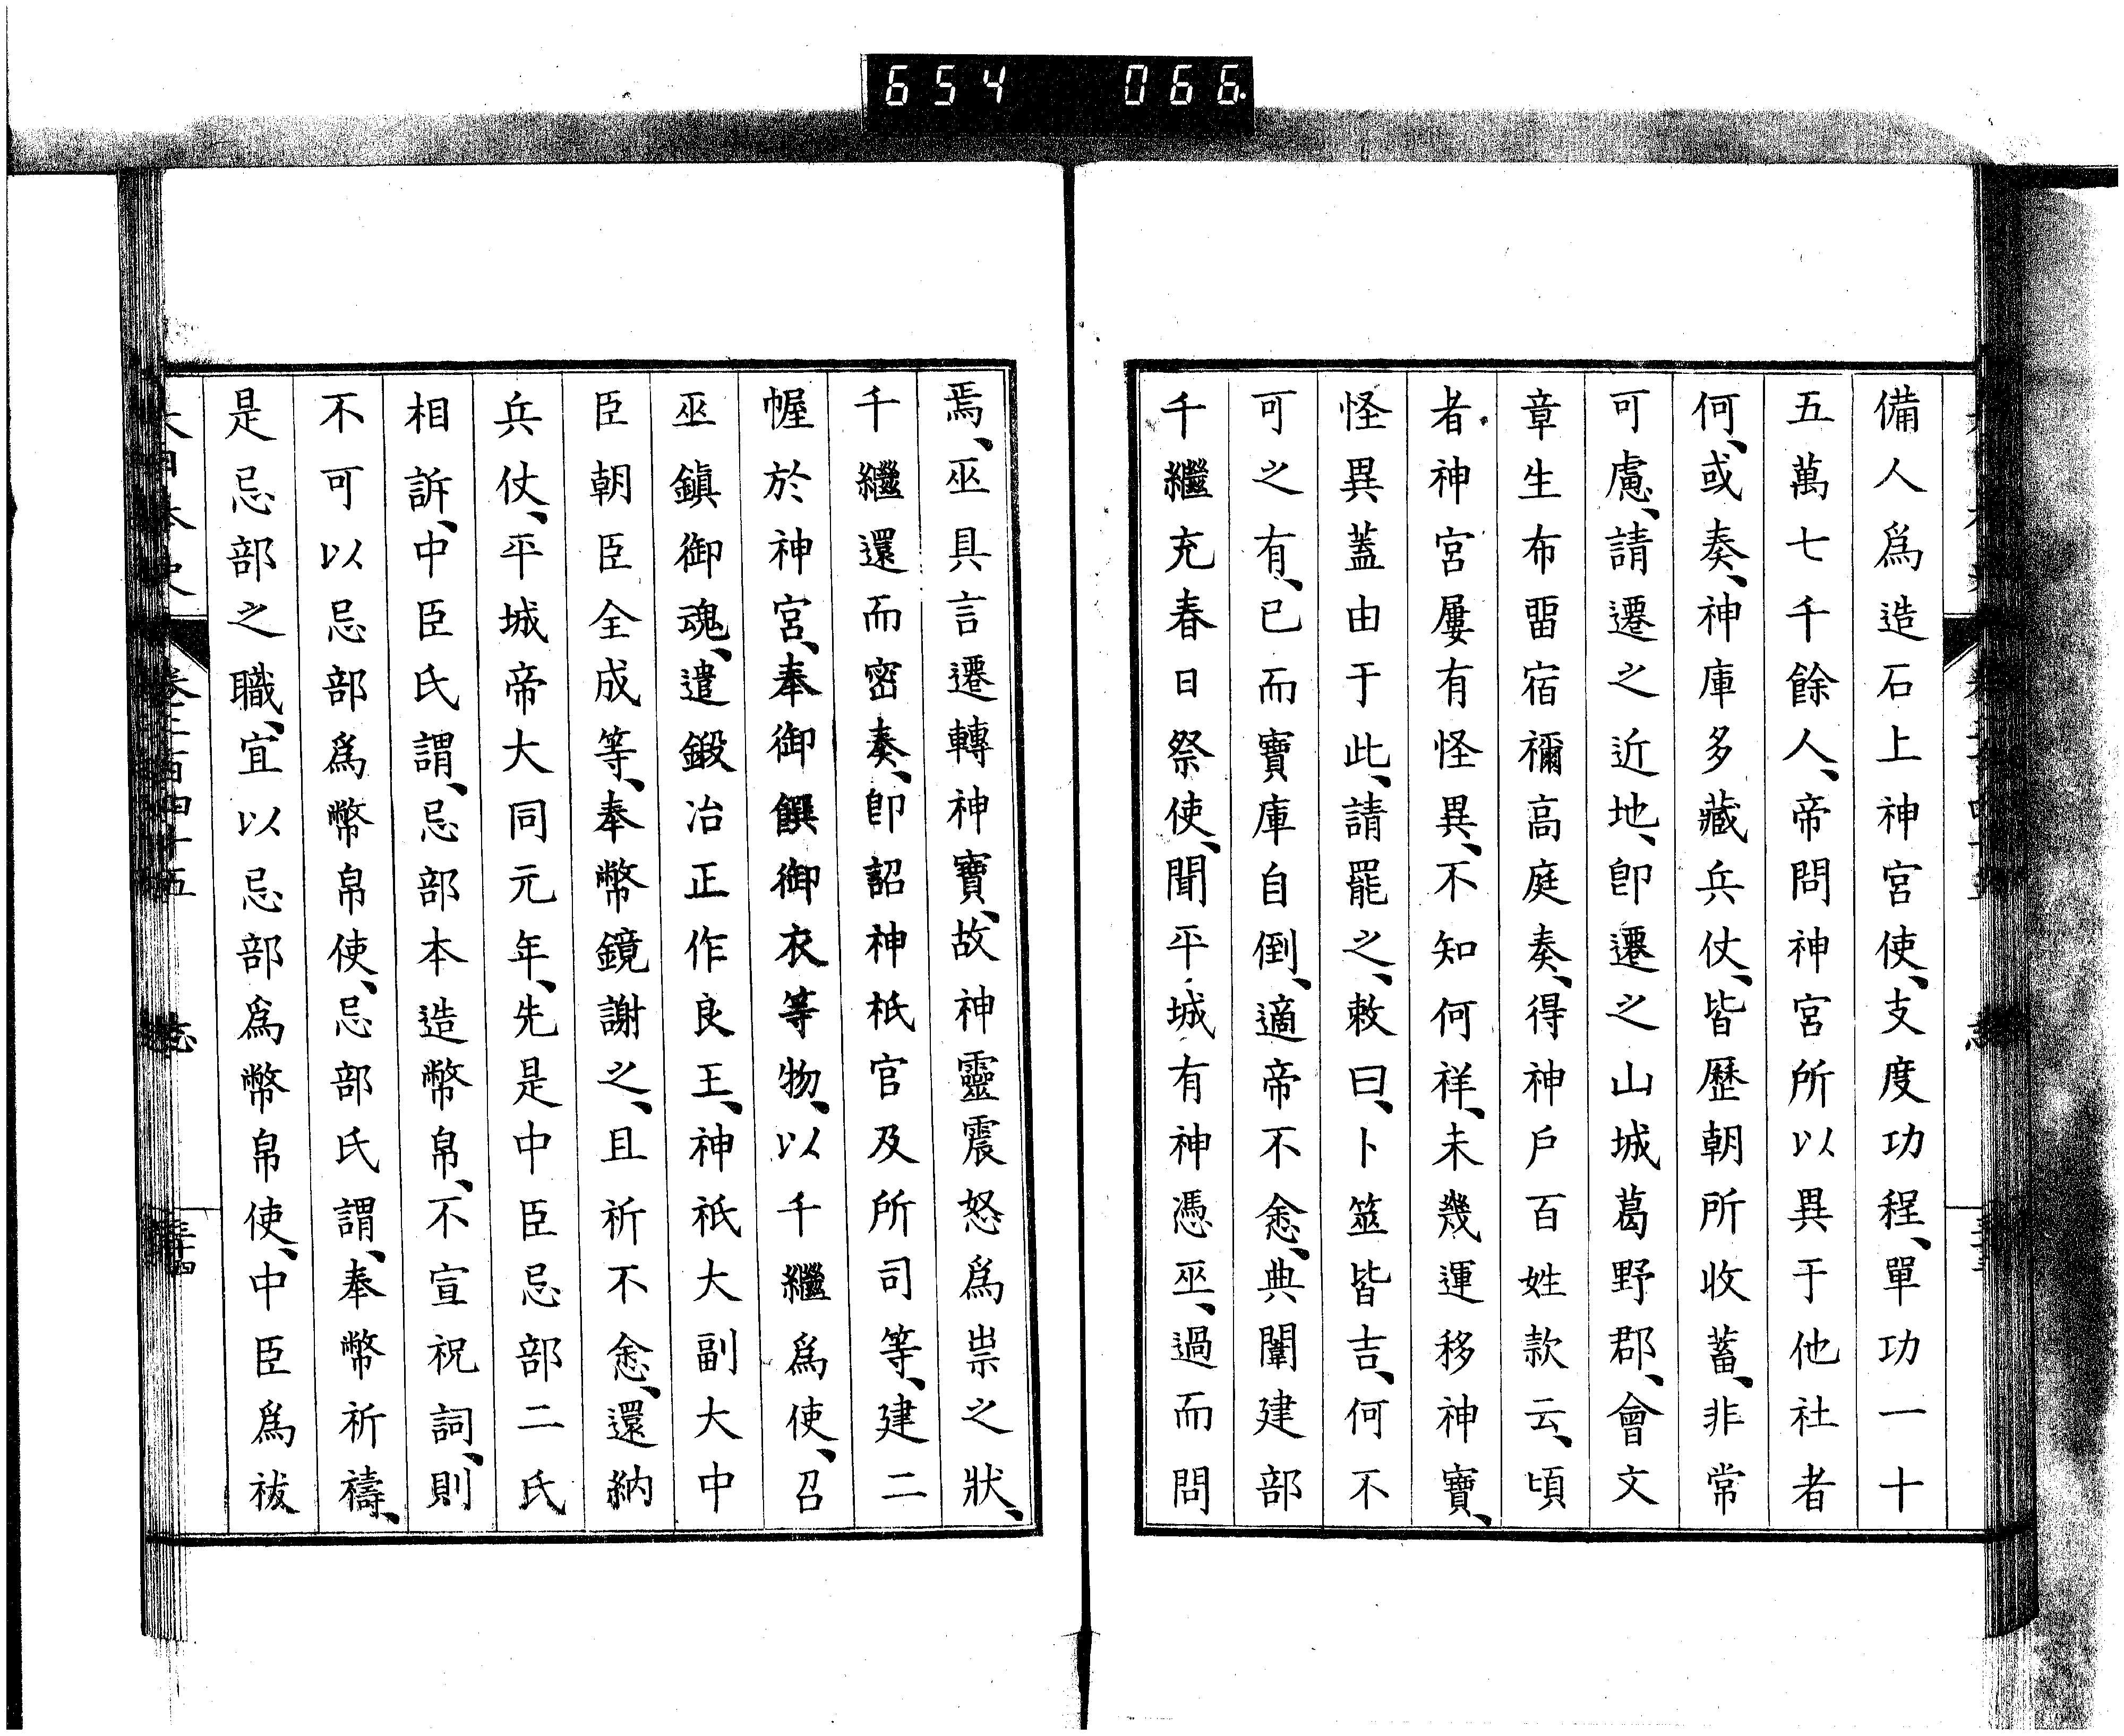 654 066
備人爲造石上神宮使、支度功程、單功一十
五萬七千餘人、帝問神宮所以異于他社者
何、或奏、神庫多藏兵仗、皆歷朝所收蓄、非常
可慮、請遷之近地、卽遷之山城葛野郡、會文
章生布畱宿禰高庭奏、得神戶百姓款云、頃
者神宮屢有怪異、不知何祥、未幾運移神寶、
怪異蓋由于此、請罷之、敕曰、卜筮皆吉、何不
可之有、已而寶庫自倒、適帝不悆、典闈建部
千繼充春日祭使、聞平城有神憑巫、過而問
焉、巫具言遷轉神寶、故神靈震怒爲祟之狀、
千繼還而密奏、卽詔神祇官及所司等、建二
幄於神宮、奉御饌御衣等物、以千繼爲使、召
巫鎭御魂、遣鍛冶正作良王、神祇大副大中
臣朝臣全成等、奉幣鏡謝之、且祈不悆、還納
兵仗、平城帝大同元年、先是中臣忌部二氏
相訴、中臣氏謂、忌部本造幣帛、不宣祝詞、則
不可以忌部爲幣帛使、忌部氏謂、奉幣祈禱、
是忌部之職、宜以忌部爲幣帛使、中臣爲祓
大日本史 卷二百四十五 志 三十四